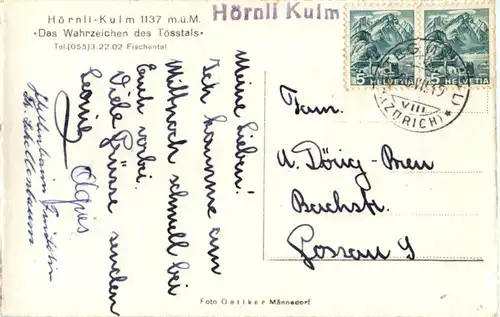 Hörnli-Kulm 1137 m.ü.M.
•Das Wahrzeichen des Tösstals•
Tel.(055)3.22.02 Fischental
Hörnli Kulm
5 HELVETIA
5 HELVETIA
VIII
(ZÜRICH)
Meine Lieben!
Ich komme am
Mittwoch schnell bei
Euch vorbei.
Viele Grüsse senden
Leonie
Agnes
Fam.
A. Dörig-
Bachstr.
Gossau
Foto Oetiker Männedorf